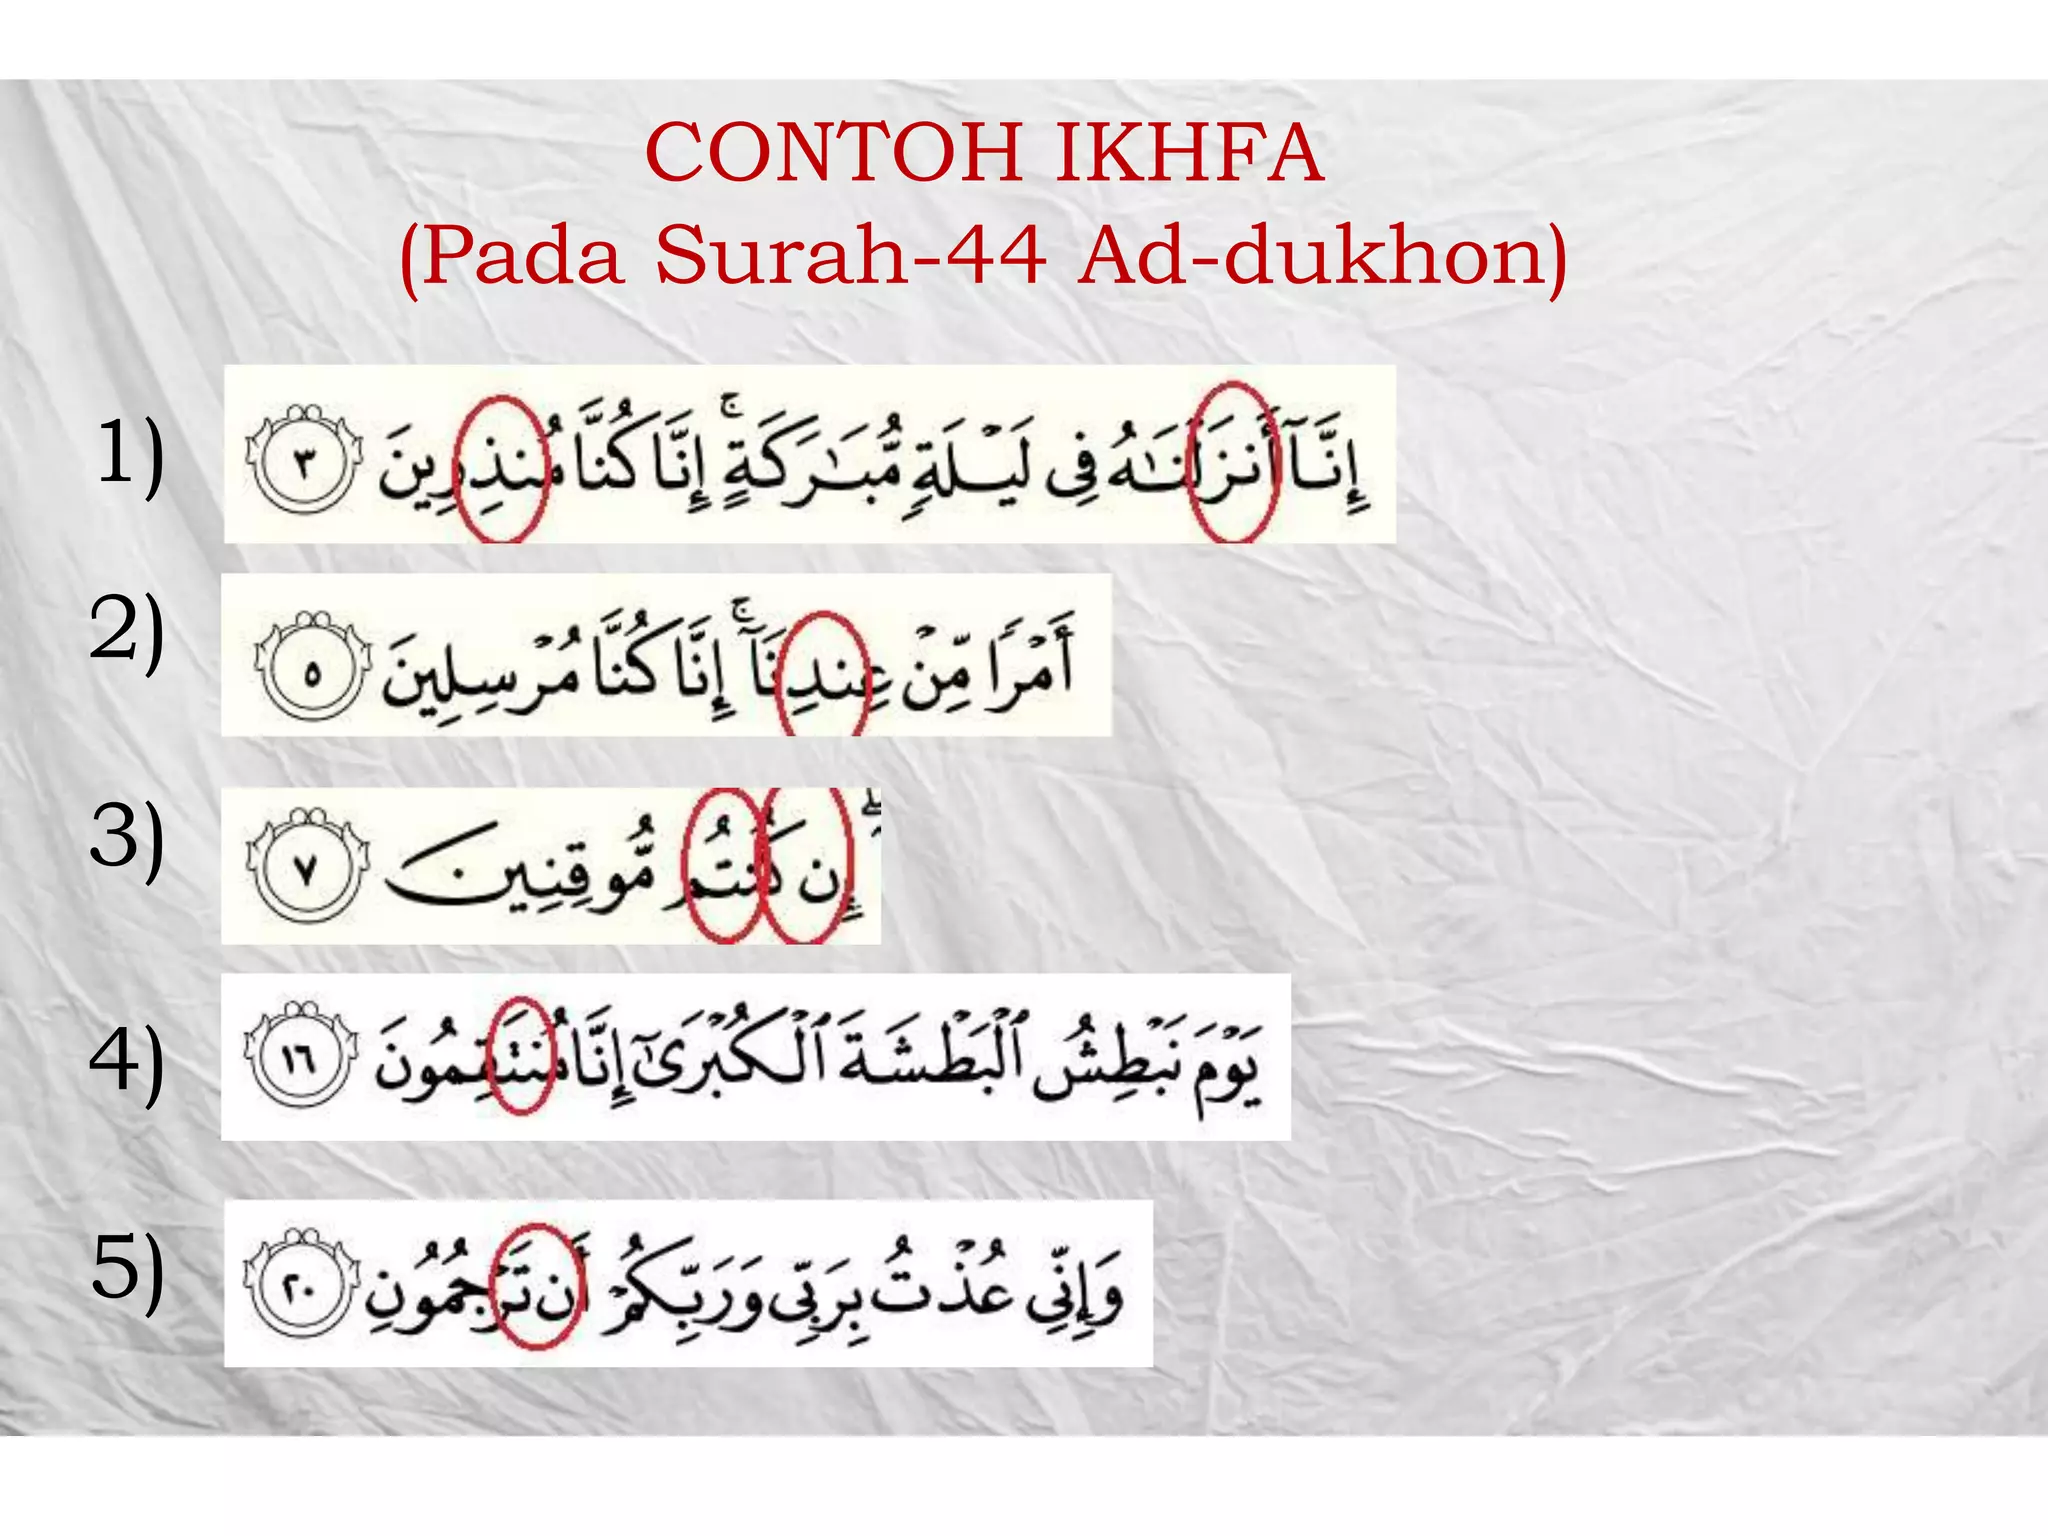 CONTOH IKHFA
(Pada Surah-44 Ad-dukhon)
1) إِنَّآ أَنزَلۡنَـٰهُ فِى لَيۡلَةٍ مُّبَـٰرَكَةٍۚ إِنَّا كُنَّا مُنذِرِينَ ٣
2) أَمۡرًا مِّنۡ عِندِنَآۚ إِنَّا كُنَّا مُرۡسِلِينَ ٥
3) إِن كُنتُم مُّوقِنِينَ ٧
4) يَوۡمَ نَبۡطِشُ ٱلۡبَطۡشَةَ ٱلۡكُبۡرَىٰٓ إِنَّا مُنتَقِمُونَ ١٦
5) وَإِنِّى عُذۡتُ بِرَبِّى وَرَبِّكُمۡ أَن تَرۡجُمُونِ ٢٠